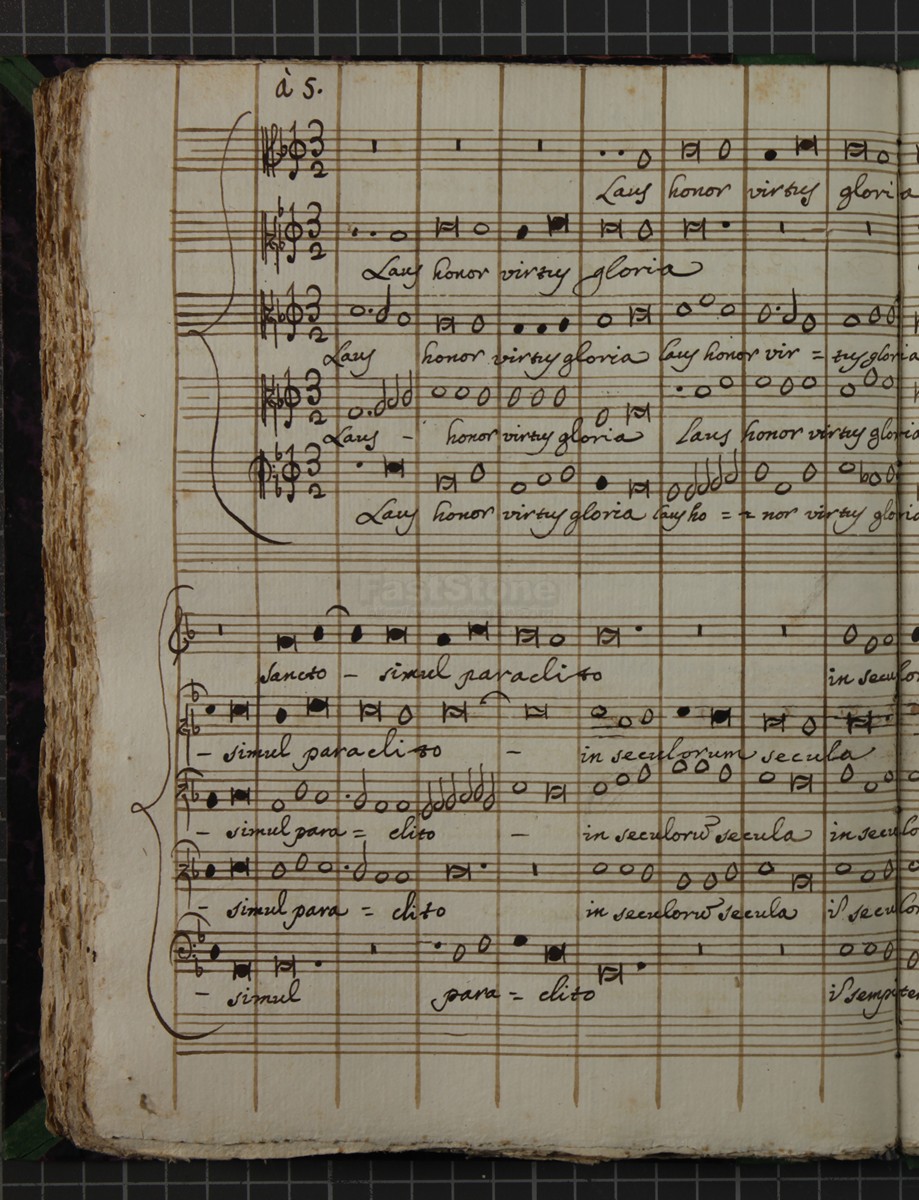 à 5.
Laus honor virtus gloria
Laus honor virtus gloria
Laus honor virtus gloria laus honor vir = tus gloria
Laus - honor virtus gloria Laus honor virtus gloria
Laus honor virtus gloria laus ho = = nor virtus gloria
FastStone
Sancto - simul paraclito in seculo
- simul paraclito - in seculorum secula
- simul para = clito - in seculorũ secula in seculo
- simul para = clito in seculorũ secula seculo
- simul para = clito sempite